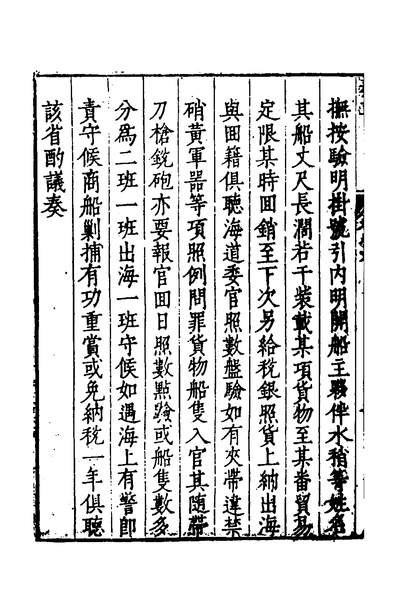 撫按驗明掛號引內明開船主夥伴水稍等姓名
其船丈尺長濶若干裝載某項貨物至某番貿易
定限某時回銷至下次另給稅銀照貨上納出海
與回籍俱聽海道委官照數盤驗如有夾帶違禁
硝黃軍器等項照例問罪貨物船隻入官其随帶
刀槍銃砲亦要報官回日照數點驗或船隻數多
分爲二班一班出海一班守候如遇海上有警即
責守候商船剿捕有功重賞或免納稅一年俱聽
該省酌議奏